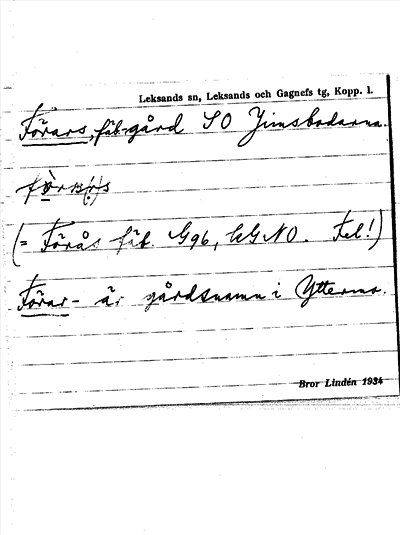 Leksands sn, Leksands och Gagnefs tg, Kopp. l.
Förars, fäb-gård SO Jimsbodarna.
(= Förås fäb. G96, LGNO. Fel!)
Förar- är gårdsnamn i Yttermo.
Bror Lindén 1934